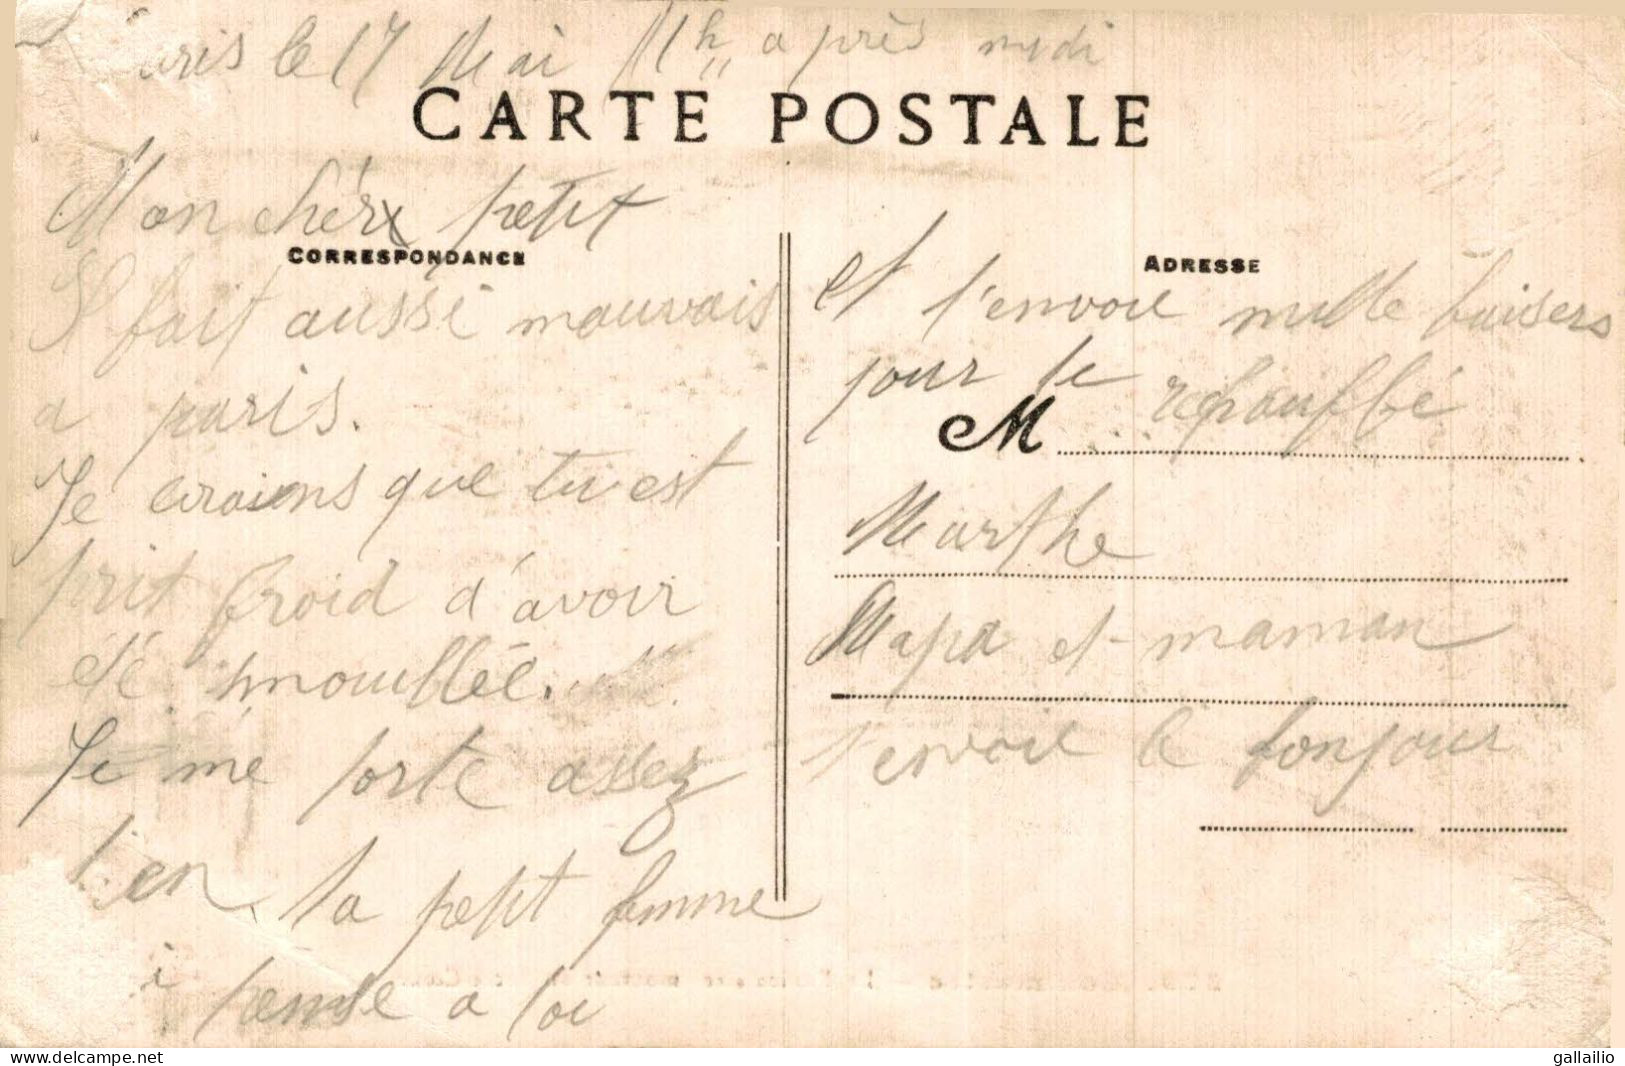 Paris le 17 Mai 11h après midi
CARTE POSTALE
Mon chéri petit
CORRESPONDANCE
Il fait aussi mauvais
a paris.
Je crains que tu est
prit froid d'avoir
été mouillée.
Je me porte assez
bien ta petit femme
pense a toi
ADRESSE
et t'envoie mille baisers
pour te
M rechauffé
Marthe
Papa et maman
t envoie le bonjour
gallailio
https://www.delcampe.net